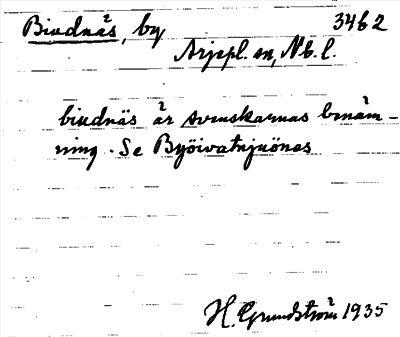 Biudnäs, by 3462
Arjepl. sn, Nb. l.
biudnäs är svenskarnas benäm-
ning. Se Byöivatnjuönas
H. Grundström 1935